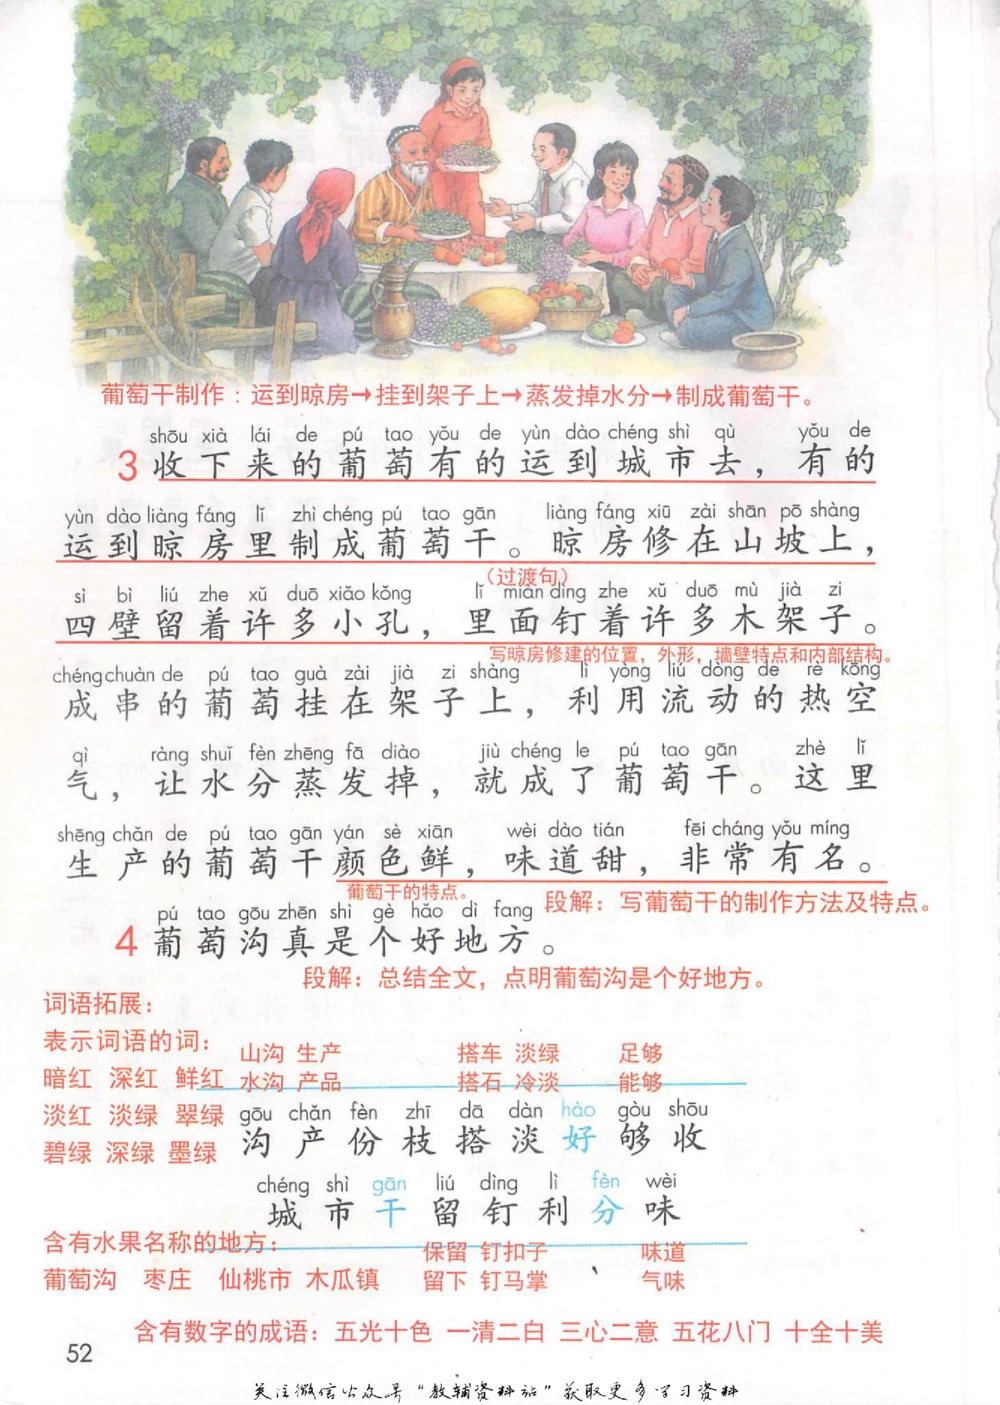 葡萄干制作：运到晾房→挂到架子上→蒸发掉水分→制成葡萄干。
shōu xià lái de pú tao yǒu de yùn dào chéng shì qù yǒu de
3 收下来的葡萄有的运到城市去，有的
yùn dào liàng fáng lǐ zhì chéng pú tao gān liàng fáng xiū zài shān pō shàng
运到晾房里制成葡萄干。晾房修在山坡上，
（过渡句）
sì bì liú zhe xǔ duō xiǎo kǒng lǐ miàn dìng zhe xǔ duō mù jià zi
四壁留着许多小孔，里面钉着许多木架子。
写晾房修建的位置，外形，墙壁特点和内部结构。
chéng chuàn de pú tao guà zài jià zi shàng lì yòng liú dòng de rè kōng
成串的葡萄挂在架子上，利用流动的热空
qì ràng shuǐ fèn zhēng fā diào jiù chéng le pú tao gān zhè lǐ
气，让水分蒸发掉，就成了葡萄干。这里
shēng chǎn de pú tao gān yán sè xiān wèi dào tián fēi cháng yǒu míng
生产的葡萄干颜色鲜，味道甜，非常有名。
葡萄干的特点。
段解：写葡萄干的制作方法及特点。
pú tao gōu zhēn shì gè hǎo dì fang
4 葡萄沟真是个好地方。
段解：总结全文，点明葡萄沟是个好地方。
词语拓展：
表示词语的词：
暗红 深红 鲜红
淡红 淡绿 翠绿
碧绿 深绿 墨绿
山沟 生产 搭车 淡绿 足够
水沟 产品 搭石 冷淡 能够
gōu chǎn fèn zhī dā dàn hào gòu shōu
沟 产 份 枝 搭 淡 好 够 收
chéng shì gān liú dìng lì fèn wèi
城 市 干 留 钉 利 分 味
含有水果名称的地方：
葡萄沟 枣庄 仙桃市 木瓜镇
保留 钉扣子 味道
留下 钉马掌 气味
含有数字的成语：五光十色 一清二白 三心二意 五花八门 十全十美
52
关注微信公众号“教辅资料站”获取更多学习资料